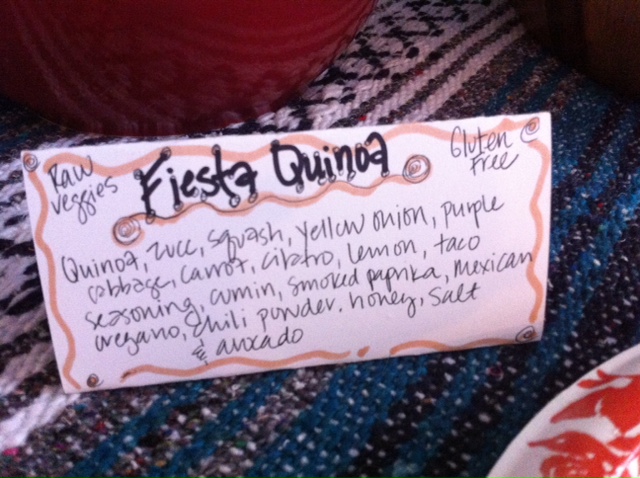 Raw
Veggies
Fiesta Quinoa
Gluten
Free
Quinoa, zucc, squash, yellow onion, purple
cabbage, carrot, cilatro, lemon, taco
seasoning, cumin, smoked paprika, Mexican
oregano, chili powder, honey, salt
& avocado